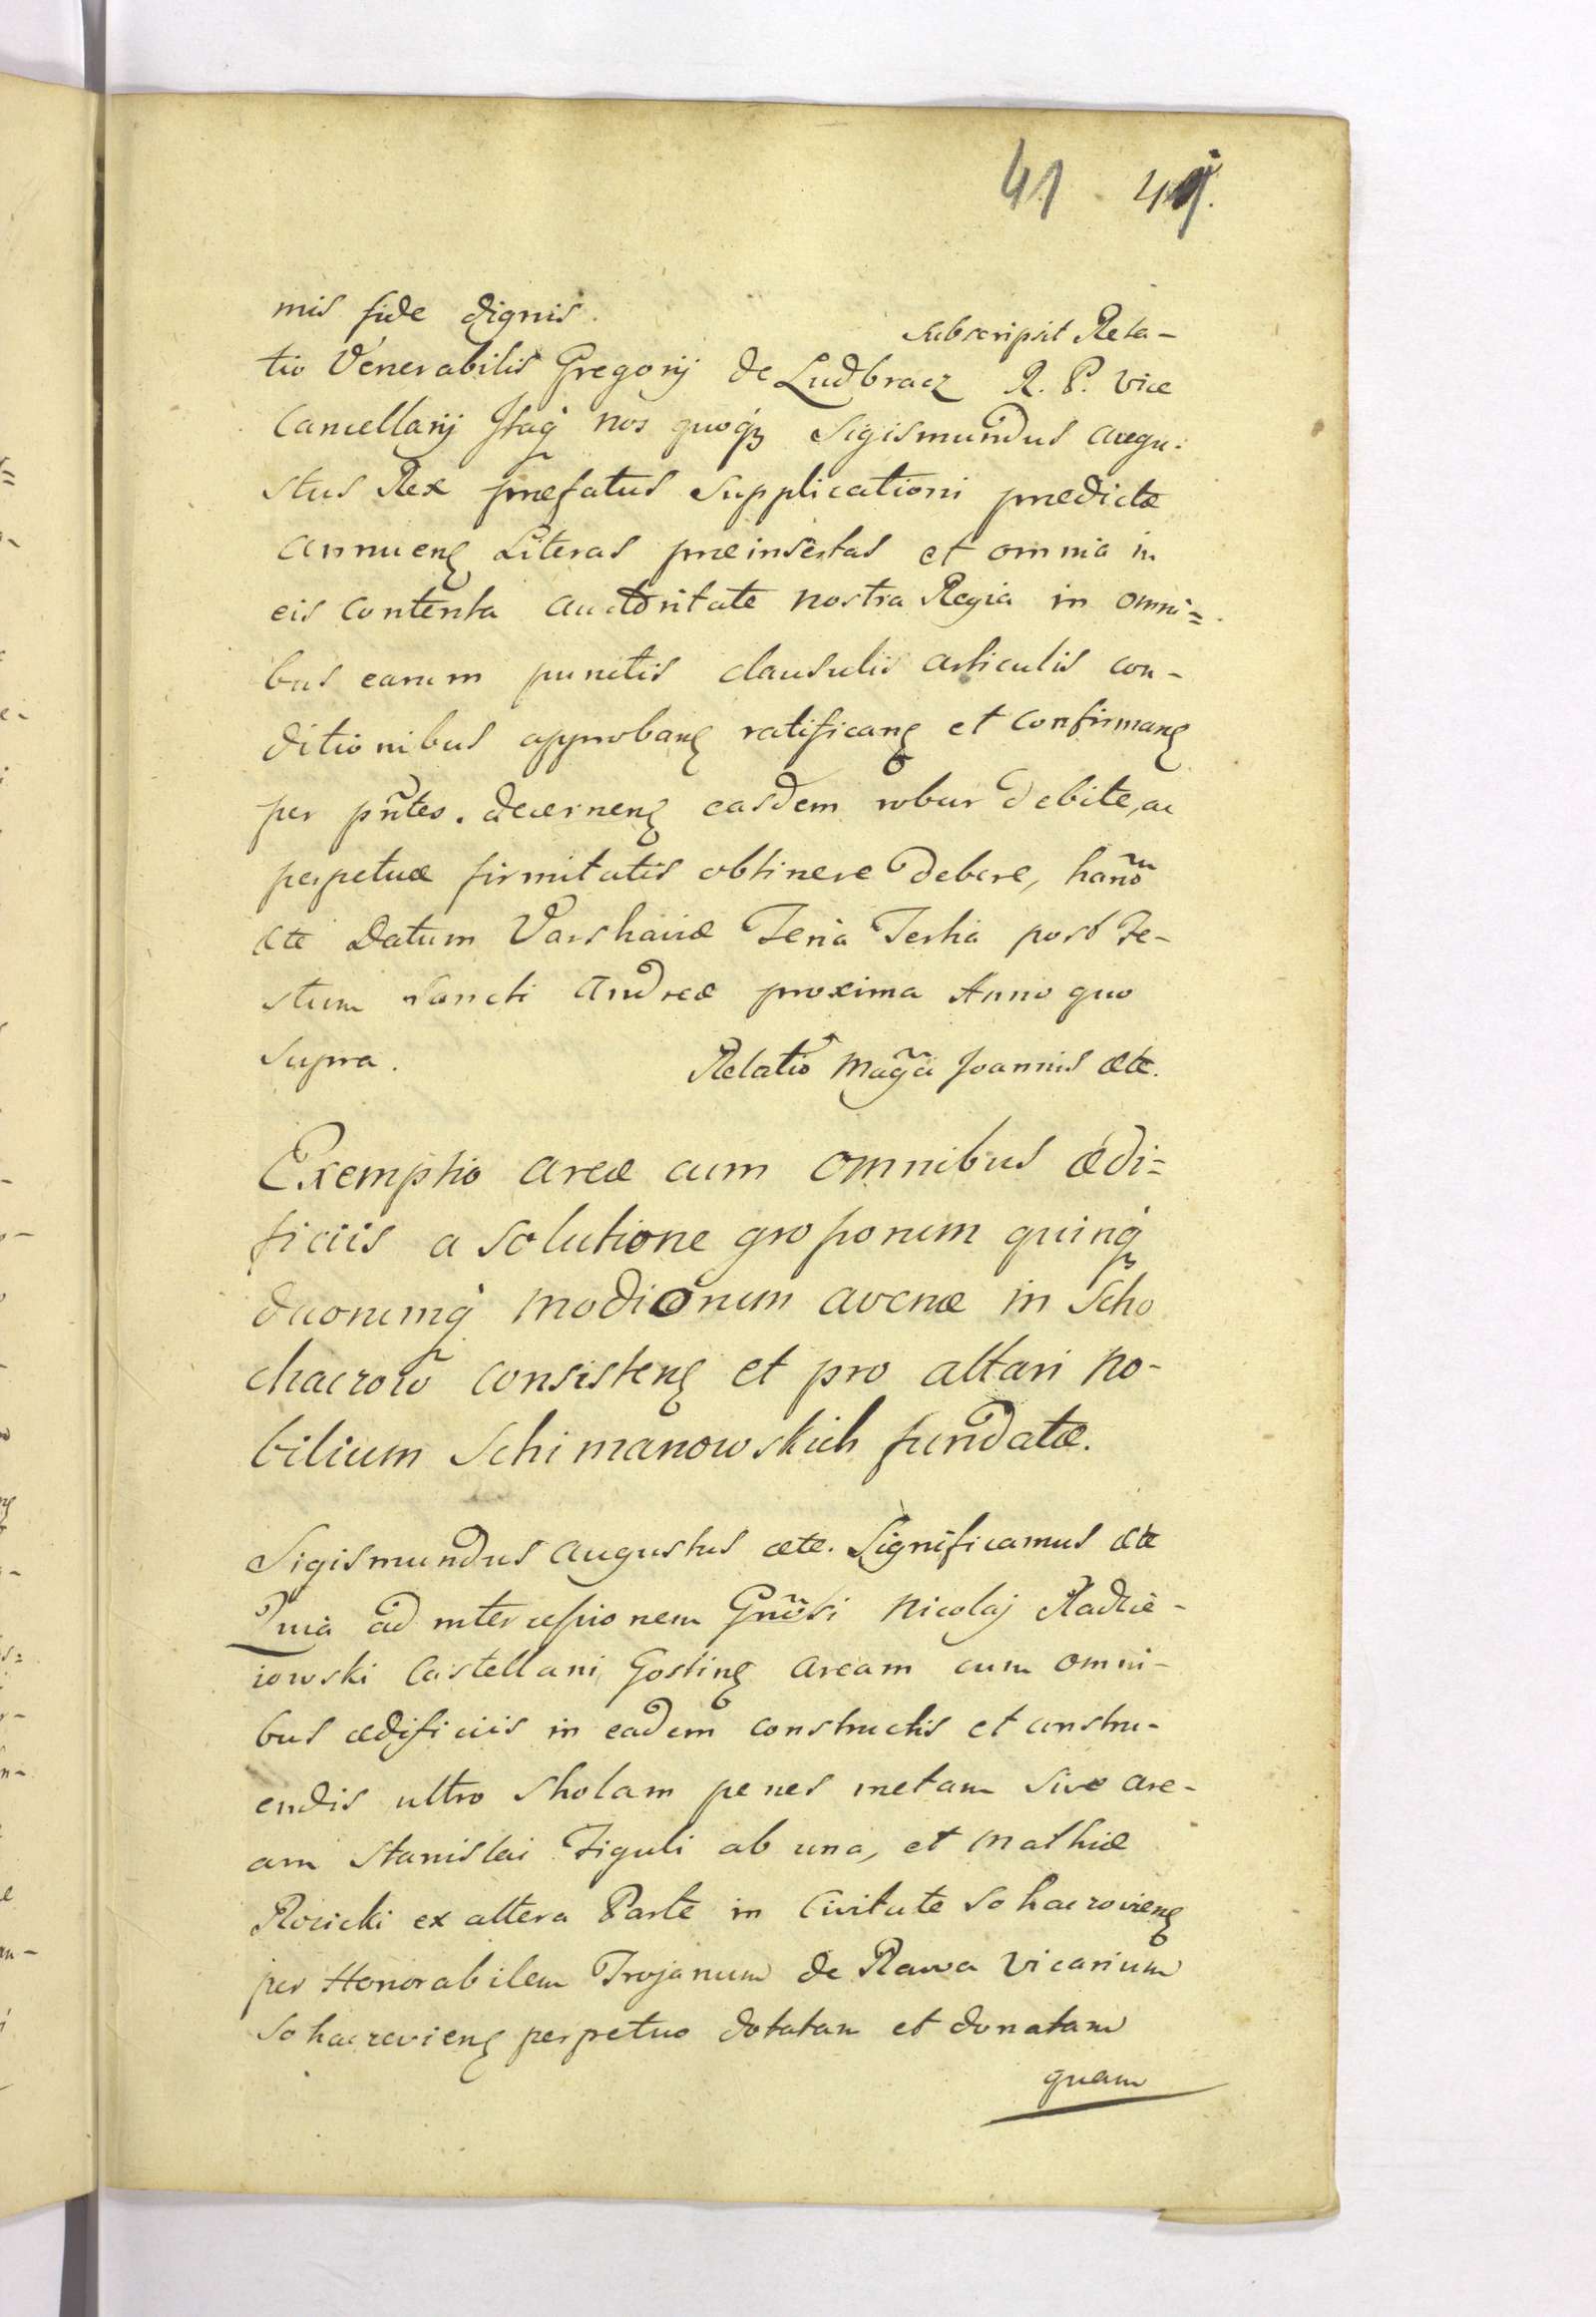 41 41.
mis fide dignis. Subscripsit Rela-
tio Venerabilis Gregorij de Ludbracz R. P. Vice
Cancellarij Itaq nos quoqȝ Sigismundus Augu-
stus Rex præfatus Supplicationi prædictæ
annuenȝ Literas præinsertas et omnia in
eis contenta auctoritate nostra Regia in omni=
bus earum punctis clausulis articulis con-
ditionibus approbanȝ ratificanȝ et confirmanȝ
per pñtes. decernenȝ easdem robur debite, ac
perpetuæ firmitatis obtinere debere, harũ
ætc Datum Varshaviæ Feria Tertia post Fe-
stum Sancti Andreæ proxima Anno quo
Supra. Relatio Mag̃ci Joannis ætc.
Exemptio areæ cum omnibus ædi=
ficiis a solutione grossorum quinqȝ
duorumq modiorum avenæ in Scho
chaczow̃ consistenȝ et pro altari No-
bilium Schimanowskich fundatæ.
Sigismundus Augustus ætc. Significamus ætc
Quia ad intercessionem Gñosi Nicolaj Radzie-
iowski Castellani Gostinȝ Aream cum omni-
bus ædificiis in eadem constructis et constru-
endis ultro Sholam penes metam sive are-
am Stanislai Figuli ab una, et Mathiæ
Rocicki ex altera Parte in Civitate Sohaczovienȝ
per Honorabilem Trojanum de Rawa Vicarium
Sohaczevienȝ perpetuo dotatam et donatam
quam